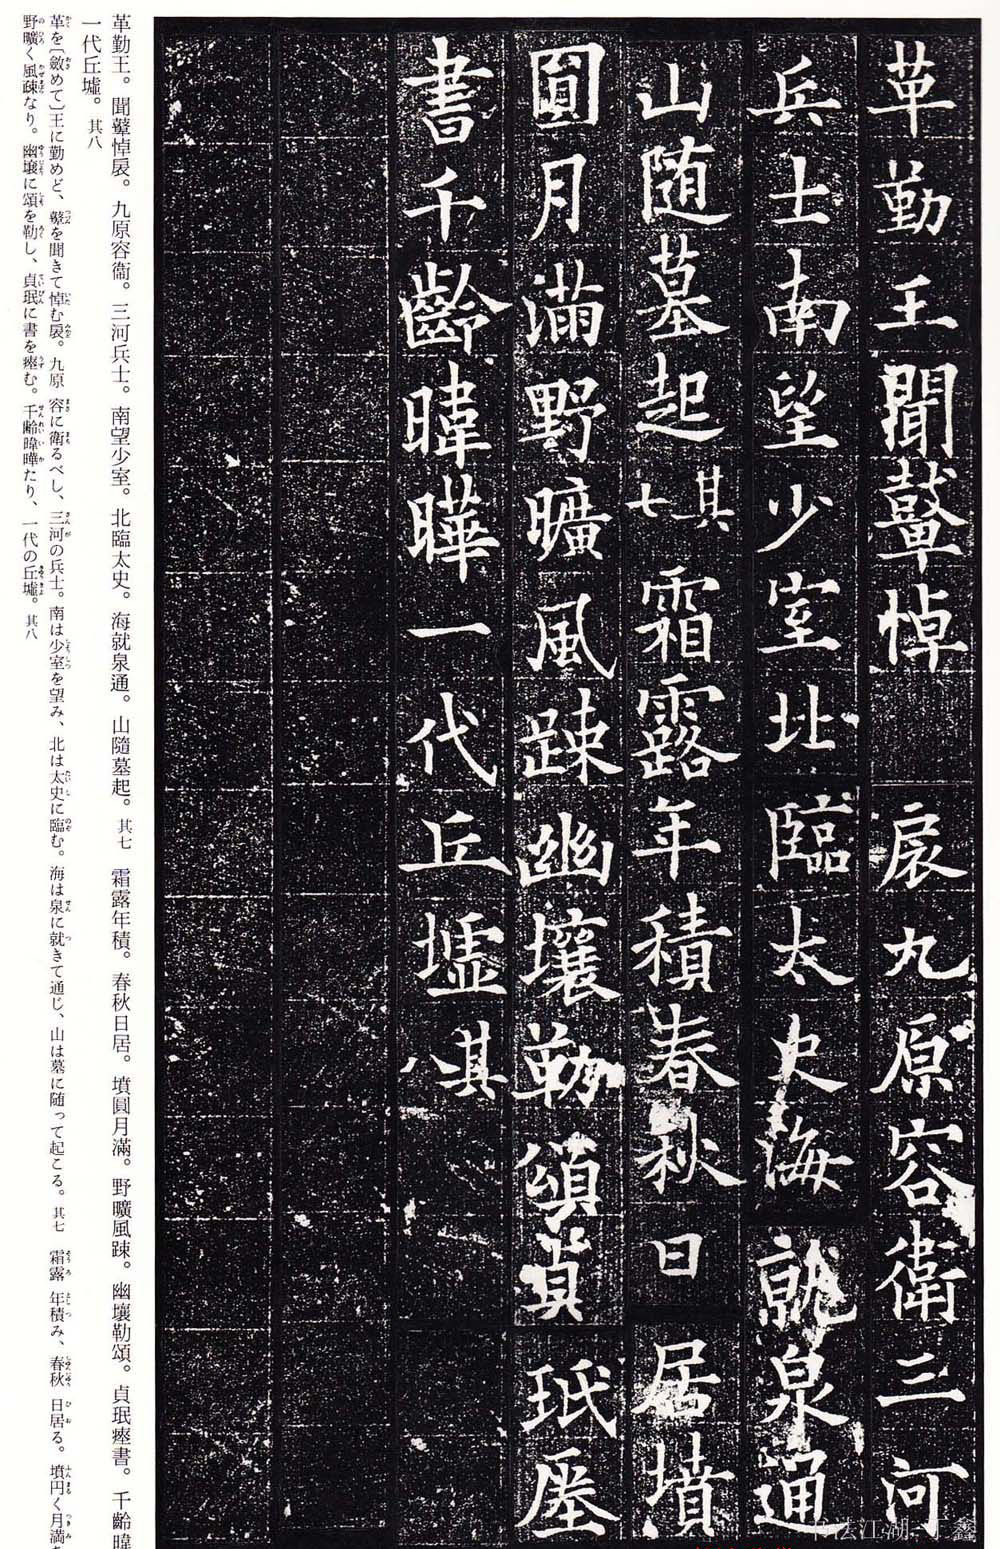 革勤王聞鼙悼扆九原容衛三河
兵士南望少室北臨太史海就泉通
山随墓起其七霜露年積春秋日居墳
圓月滿野曠風踈幽壤勒頌貞珉瘞
書千齡暐曄一代丘墟其八
革勤王。聞鼙悼扆。九原容衞。三河兵士。南望少室。北臨太史。海就泉通。山隨墓起。其七 霜露年積。春秋日居。墳圓月滿。野曠風踈。幽壤勒頌。貞珉瘞書。千齡暐
一代丘墟。其八
革を〔斂めて〕王に勤めど、鼙を聞きて悼む扆。九原 容に衛るべし、三河の兵士。南は少室を望み、北は太史に臨む。海は泉に就きて通じ、山は墓に随って起こる。其七 霜露 年積み、春秋 日居る。墳円く月満
野曠く風踈なり。幽壌に頌を勒し、貞珉に書を瘞む。千齢暐曄たり、一代の丘墟。其八
书法江湖 丁鑫